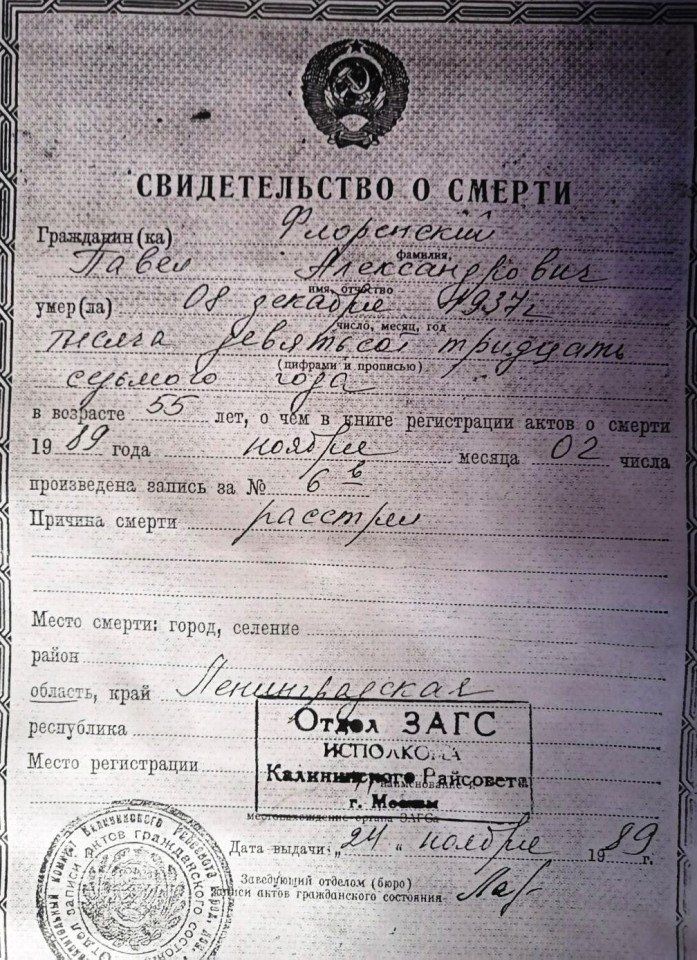 СВИДЕТЕЛЬСТВО О СМЕРТИ
Гражданин (ка) Флоренский
фамилия,
Павел Александрович
имя, отчество
умер (ла) 08 декабря 1937г
число, месяц, год
тысяча девятьсот тридцать
(цифрами и прописью)
седьмого года
в возрасте 55 лет, о чем в книге регистрации актов о смерти
1989 года ноября месяца 02 числа
произведена запись за № 6 в
Причина смерти расстрел
Место смерти: город, селение
район
область, край Ленинградская
республика
Отдел ЗАГС
ИСПОЛКОМА
Место регистрации
Калининского Райсовета
наименование и
г. Москвы
местонахождение органа ЗАГСа
Дата выдачи „24“ ноября 1989 г.
Заведующий отделом (бюро)
записи актов гражданского состояния
Отдел записи актов гражданского состояния